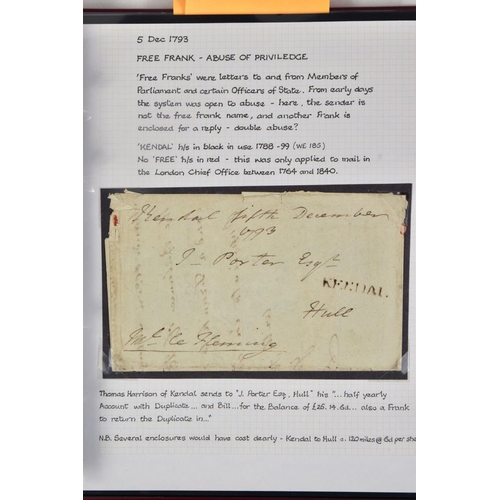 5 Dec 1793
FREE FRANK - ABUSE OF PRIVILEDGE
'Free Franks' were letters to and from Members of
Parliament and certain Officers of State. From early days
the system was open to abuse - here, the sender is
not the free frank name, and another Frank is
enclosed for a reply - double abuse?
'KENDAL' h/s in black in use 1788-99 (WE 185)
No 'FREE' h/s in red - this was only applied to mail in
the London Chief Office between 1764 and 1840.
Kendal fifth December
1793
J Porter Esqr
KENDAL
Hull
Fleming
Thomas Harrison of Kendal sends to "J. Porter Esq, Hull" his "...half yearly
Account with Duplicate... and Bill...for the Balance of £25.14.6d... also a Frank
to return the Duplicate in..."
N.B. Several enclosures would have cost dearly - Kendal to Hull c. 120 miles @ 6d per she